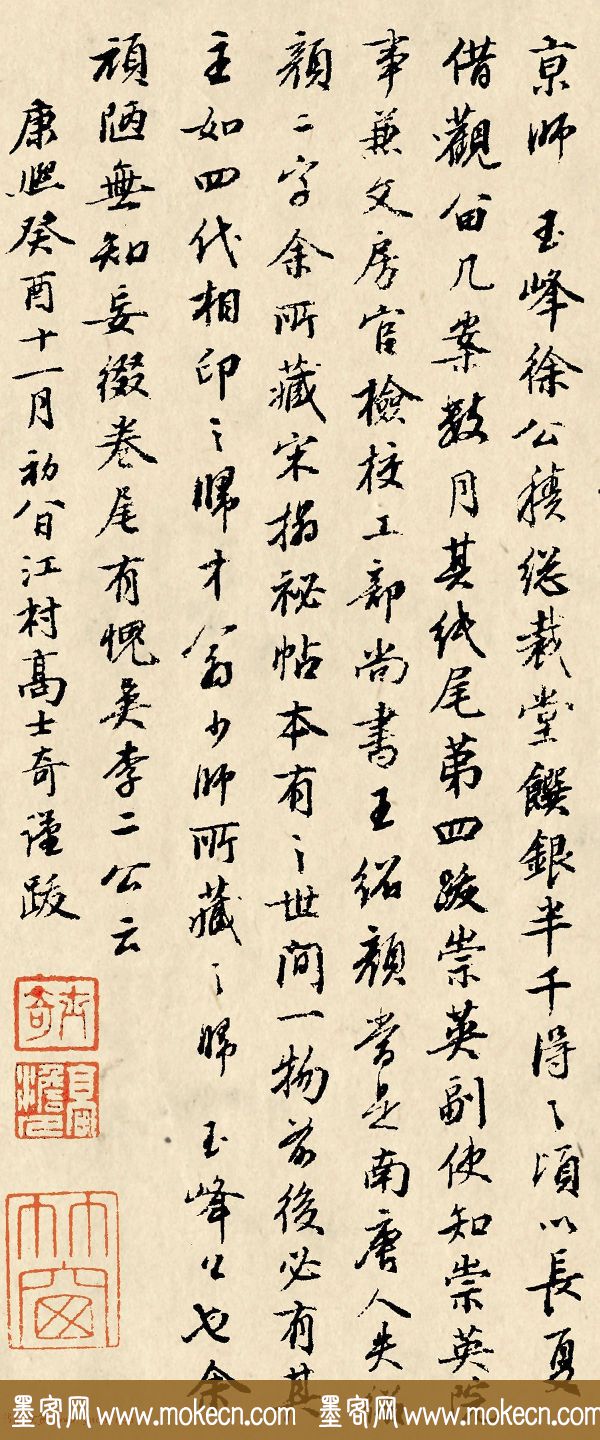 京師　玉峰徐公積總裁堂饌銀半千得之頃以長夏
借觀留几案數月其紙尾第四跋崇英副使知崇英院
事兼文房官檢校工部尚書王紹顏當是南唐人失
顏二字余所藏宋搨祕帖本有之世間一物前後必有其
主如四代相印之歸才翁少師所藏之歸　玉峰公也余
頑陋無知妄綴卷尾有愧吳李二公云
康熙癸酉十一月初八日江村高士奇謹跋
士奇
竹窗
墨客网www.mokecn.com 墨客网www.mokecn.com